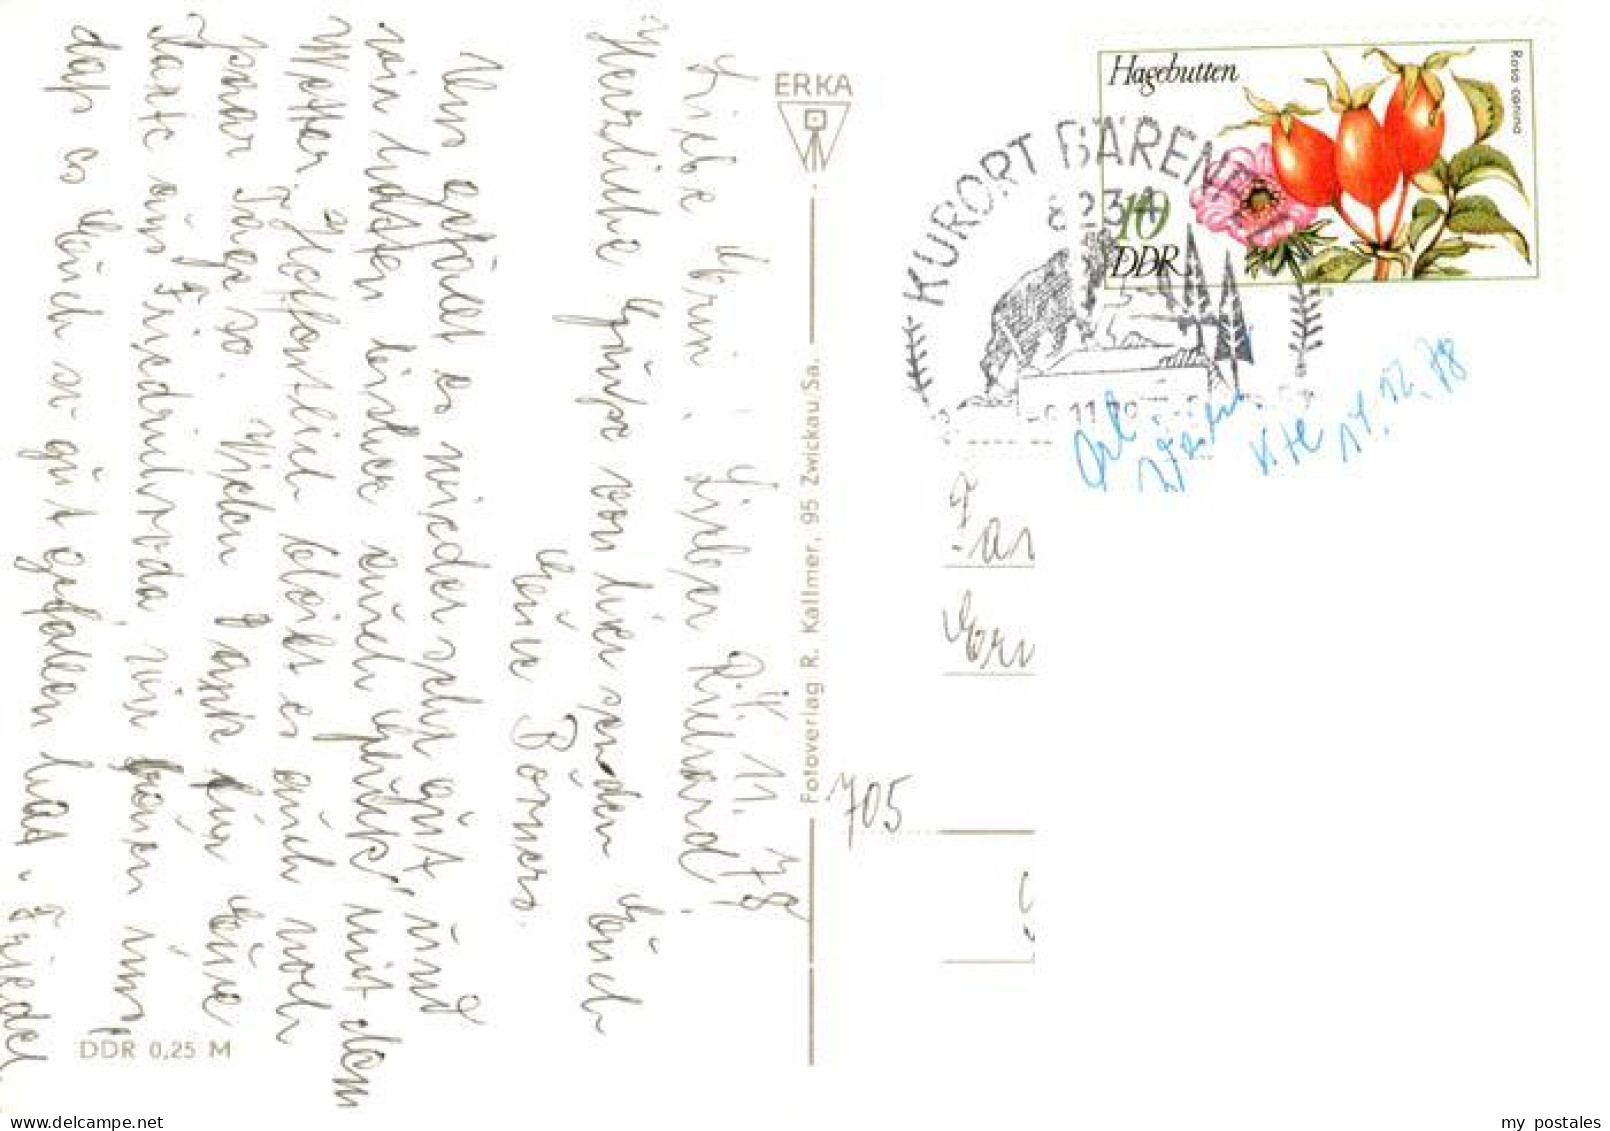 IX. 11. 78
Liebe Erni, Lieber Richard!
Herzliche Grüße von hier senden Euch
Eure Börners.
Uns gefällt es wieder sehr gut und
wir hatten bisher auch Glück mit dem
Wetter. Hoffentlich bleibt es auch noch
paar Tage so. Vielen Dank für Eure
Karte aus Friedrichroda, wir freuen uns,
daß es Euch so gut gefallen hat. Friedel
DDR 0,25 M
ERKA
Fotoverlag R. Kallmer, 95 Zwickau/Sa.
705
Hagebutten
Rosa canina
10
DDR
KURORT BÄREN
8231
14. 12. 78
Fam
my postales